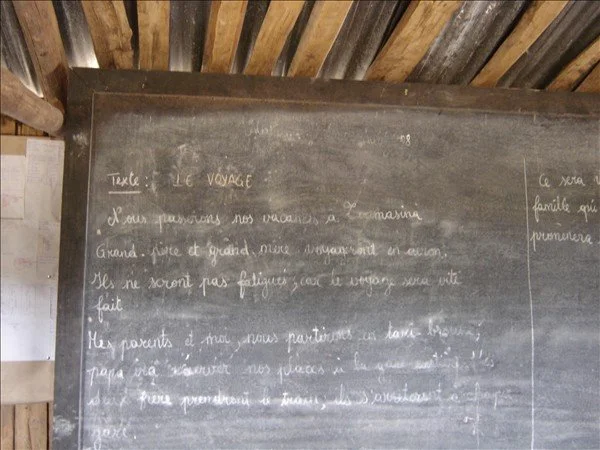 08
Texte : LE VOYAGE
Nous passerons nos vacances à Toamasina
Grand-père et grand-mère voyageront en avion.
Ils ne seront pas fatigués, car le voyage sera vite
fait.
Mes parents et moi, nous partirons en taxi-brousse,
papa ira réserver nos places à la gare
frère prendront le train, ils s'arrêteront à
gare.
Ce sera
famille qui
promènera